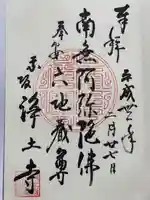 奉拝
平成廿二年
二月廿七日
南無阿弥陀佛
奉安
六地蔵尊
浄土寺